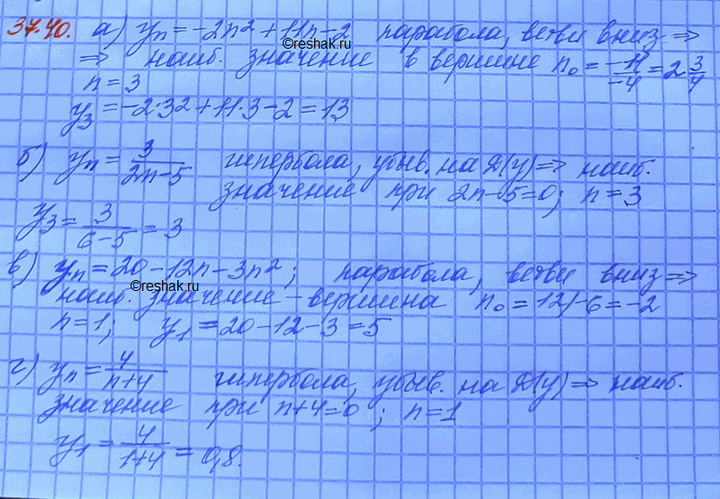 37.40. а) yₙ = -2n² + 11n - 2 парабола, ветви вниз ⇒
©reshak.ru
⇒ наиб. значение в вершине n₀ = -11/-4 = 2 3/4
n = 3
y₃ = -2·3² + 11·3 - 2 = 13
б) yₙ = 3/(2n-5) гипербола, убыв. на D(y) ⇒ наиб.
значение при 2n-5=0; n = 3
y₃ = 3/(6-5) = 3
в) yₙ = 20 - 12n - 3n²; парабола, ветви вниз ⇒
©reshak.ru
наиб. значение - вершина n₀ = 12/-6 = -2
n = 1; y₁ = 20 - 12 - 3 = 5
г) yₙ = 4/(n+4) гипербола, убыв. на D(y) ⇒ наиб.
значение при n+4=0; n=1
y₁ = 4/(1+4) = 0,8.